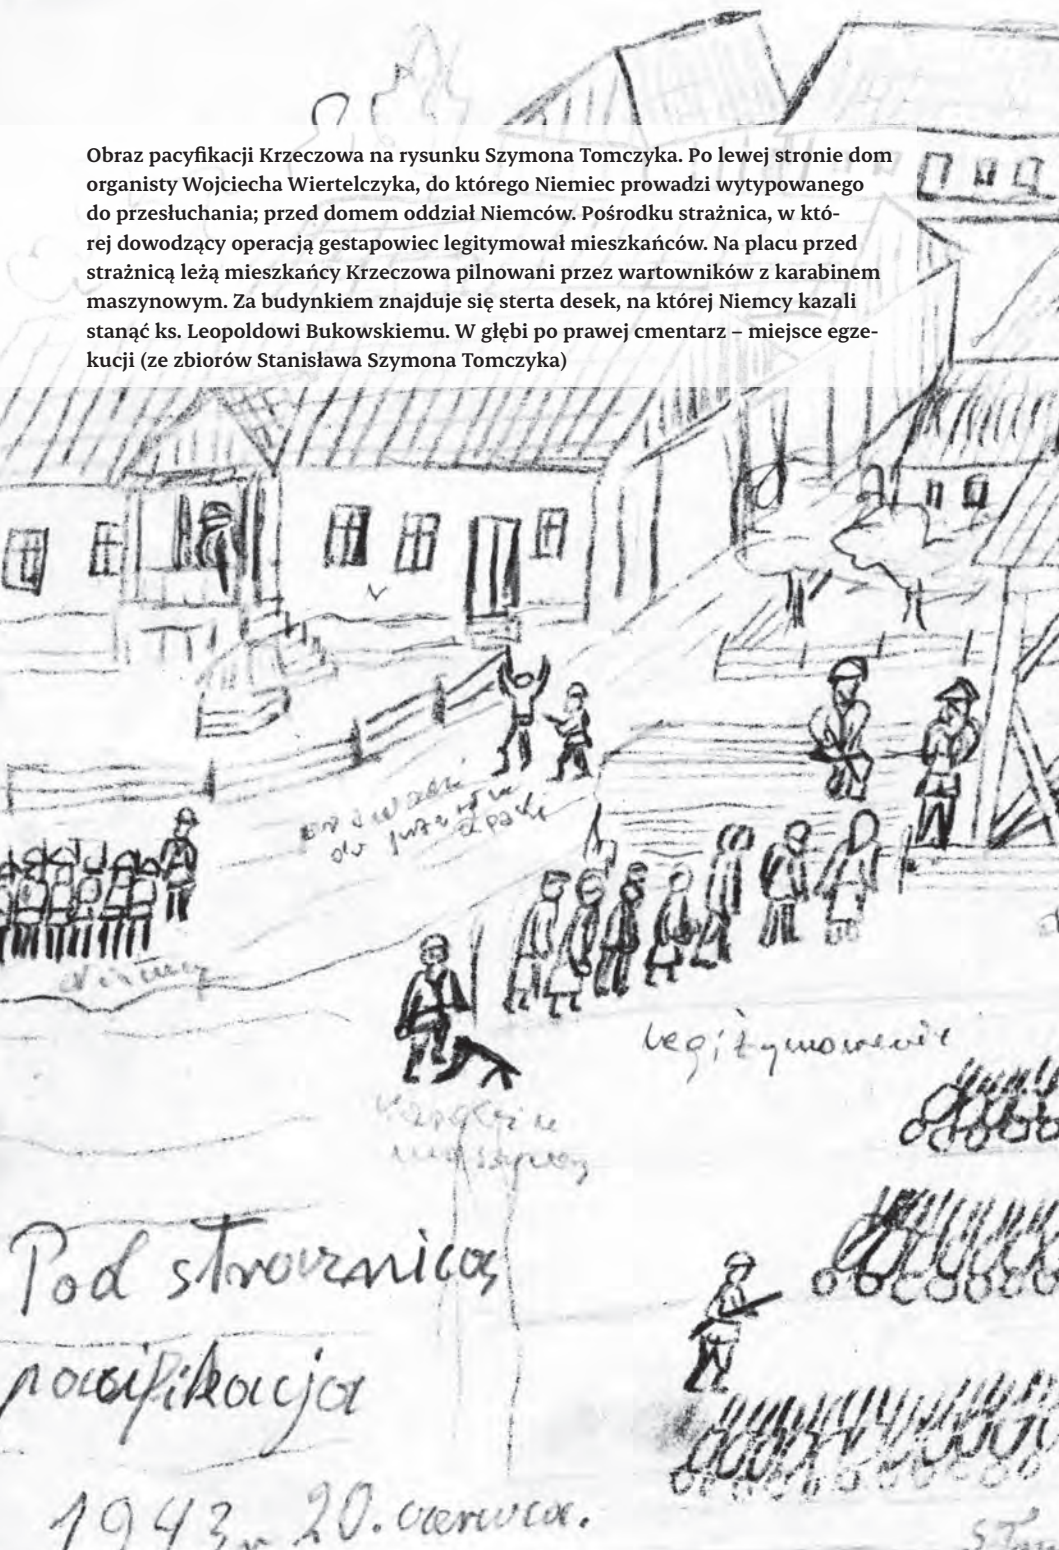 Obraz pacyfikacji Krzeczowa na rysunku Szymona Tomczyka. Po lewej stronie dom
organisty Wojciecha Wiertelczyka, do którego Niemiec prowadzi wytypowanego
do przesłuchania; przed domem oddział Niemców. Pośrodku strażnica, w któ-
rej dowodzący operacją gestapowiec legitymował mieszkańców. Na placu przed
strażnicą leżą mieszkańcy Krzeczowa pilnowani przez wartowników z karabinem
maszynowym. Za budynkiem znajduje się sterta desek, na której Niemcy kazali
stanąć ks. Leopoldowi Bukowskiemu. W głębi po prawej cmentarz – miejsce egze-
kucji (ze zbiorów Stanisława Szymona Tomczyka)
do
Niemcy
Legitymowanie
maszynowy
Pod strażnicą
pacifikacja
1943 r 20. czerwca.